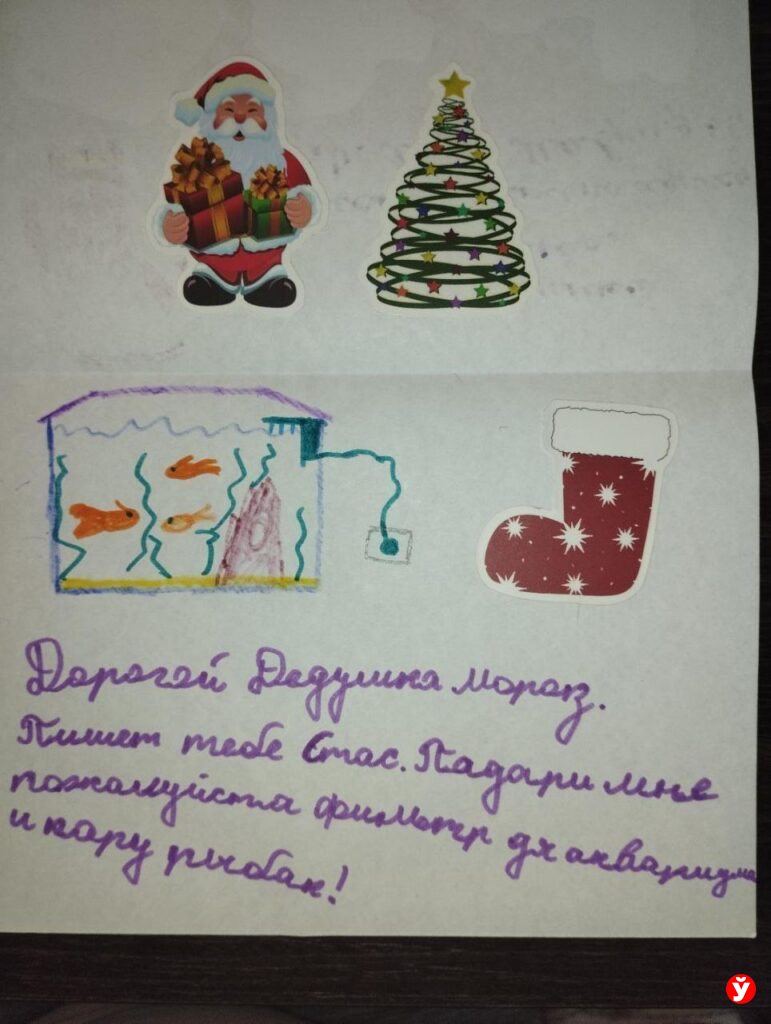 Дорогой Дедушка мороз.
Пишет тебе Стас. Падари мне
пожалуйста фильтр дл аквариума
и пару рыбак!
ў